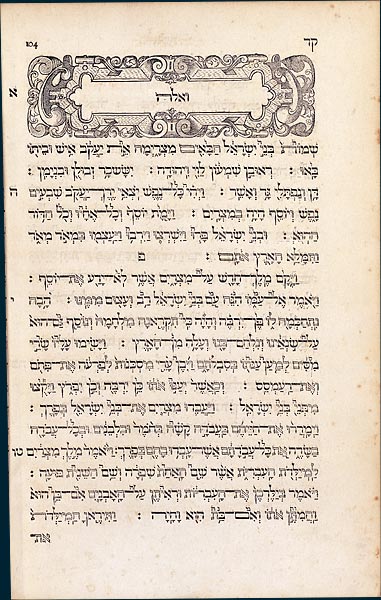 104 קד
ואלה
א
שְׁמוֹת בְּנֵי יִשְׂרָאֵל הַבָּאִים מִצְרָיְמָה אֵת יַעֲקֹב אִישׁ וּבֵיתוֹ
בָּאוּ : רְאוּבֵן שִׁמְעוֹן לֵוִי וִיהוּדָה : יִשָּׂשכָר זְבוּלֻן וּבִנְיָמִן :
דָּן וְנַפְתָּלִי גָּד וְאָשֵׁר : וַיְהִי כָּל־נֶפֶשׁ יֹצְאֵי יֶרֶךְ־יַעֲקֹב שִׁבְעִים
ה
נָפֶשׁ וְיוֹסֵף הָיָה בְמִצְרָיִם : וַיָּמָת יוֹסֵף וְכָל־אֶחָיו וְכֹל הַדּוֹר
הַהוּא : וּבְנֵי יִשְׂרָאֵל פָּרוּ וַיִּשְׁרְצוּ וַיִּרְבּוּ וַיַּעַצְמוּ בִּמְאֹד מְאֹד
וַתִּמָּלֵא הָאָרֶץ אֹתָם : פ
וַיָּקָם מֶלֶךְ־חָדָשׁ עַל־מִצְרָיִם אֲשֶׁר לֹא־יָדַע אֶת־יוֹסֵף :
וַיֹּאמֶר אֶל־עַמּוֹ הִנֵּה עַם בְּנֵי יִשְׂרָאֵל רַב וְעָצוּם מִמֶּנּוּ : הָבָה
י
נִתְחַכְּמָה לוֹ פֶּן־יִרְבֶּה וְהָיָה כִּי־תִקְרֶאנָה מִלְחָמָה וְנוֹסַף גַּם־הוּא
עַל־שֹׂנְאֵינוּ וְנִלְחַם־בָּנוּ וְעָלָה מִן־הָאָרֶץ : וַיָּשִׂימוּ עָלָיו שָׂרֵי
מִסִּים לְמַעַן עַנֹּתוֹ בְּסִבְלֹתָם וַיִּבֶן עָרֵי מִסְכְּנוֹת לְפַרְעֹה אֶת־פִּתֹם
וְאֶת־רַעַמְסֵס : וְכַאֲשֶׁר יְעַנּוּ אֹתוֹ כֵּן יִרְבֶּה וְכֵן יִפְרֹץ וַיָּקֻצוּ
מִפְּנֵי בְּנֵי יִשְׂרָאֵל : וַיַּעֲבִדוּ מִצְרַיִם אֶת־בְּנֵי יִשְׂרָאֵל בְּפָרֶךְ :
וַיְמָרֲרוּ אֶת־חַיֵּיהֶם בַּעֲבֹדָה קָשָׁה בְּחֹמֶר וּבִלְבֵנִים וּבְכָל־עֲבֹדָה
בַּשָּׂדֶה אֵת כָּל־עֲבֹדָתָם אֲשֶׁר־עָבְדוּ בָהֶם בְּפָרֶךְ : וַיֹּאמֶר מֶלֶךְ מִצְרַיִם
טו
לַמְיַלְּדֹת הָעִבְרִיֹּת אֲשֶׁר שֵׁם הָאַחַת שִׁפְרָה וְשֵׁם הַשֵּׁנִית פּוּעָה :
וַיֹּאמֶר בְּיַלֶּדְכֶן אֶת־הָעִבְרִיּוֹת וּרְאִיתֶן עַל־הָאָבְנָיִם אִם־בֵּן הוּא
וַהֲמִתֶּן אֹתוֹ וְאִם־בַּת הִוא וָחָיָה : וַתִּירֶאןָ הַמְיַלְּדֹת
את־